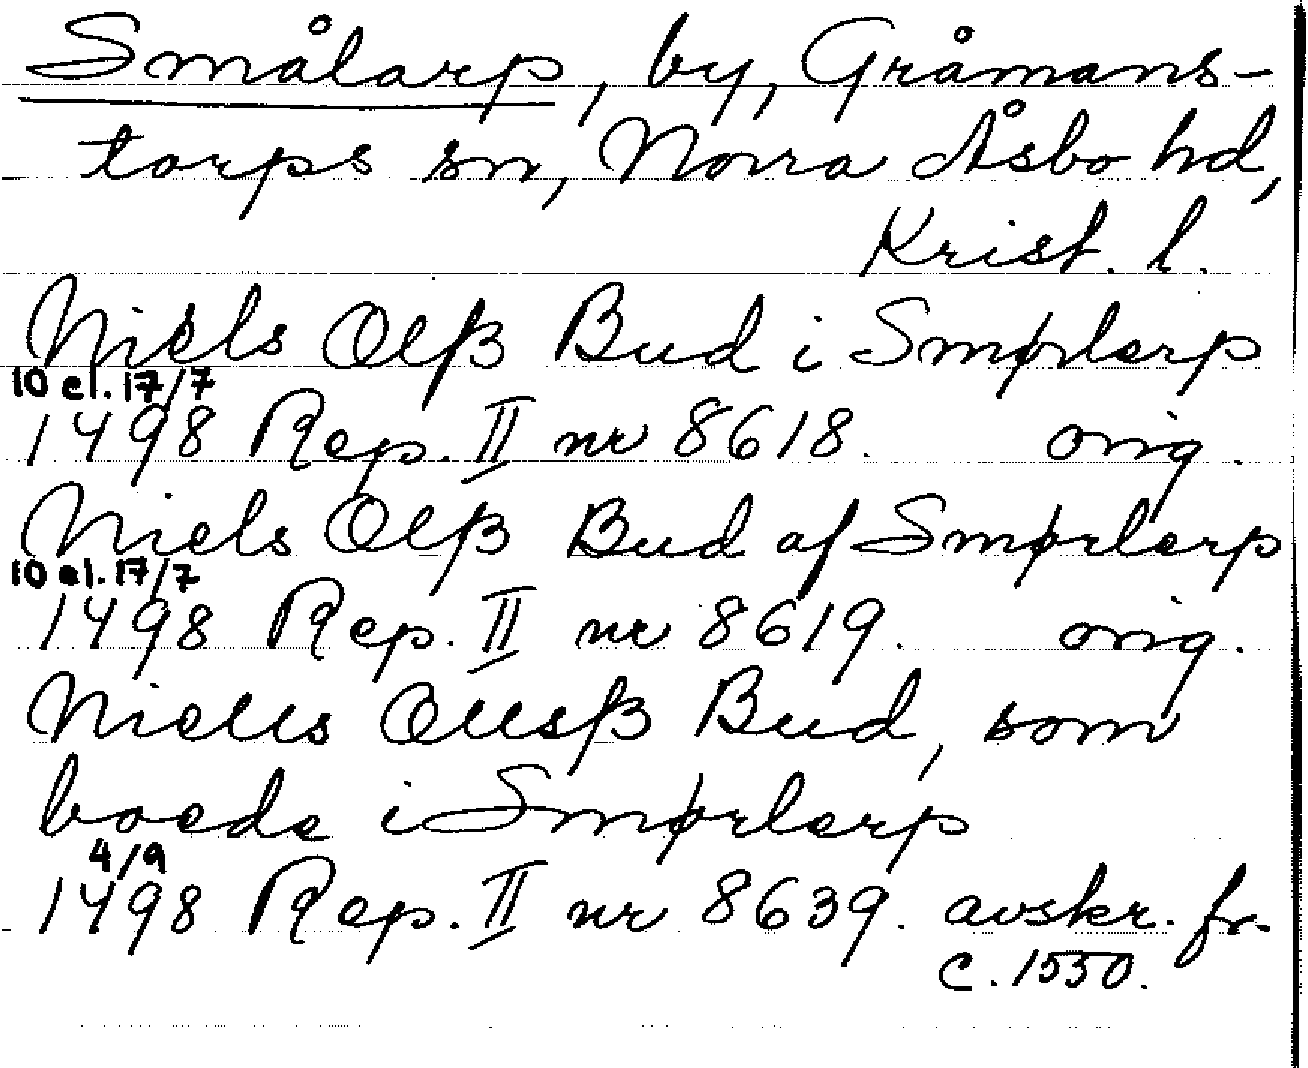 Smålarp, by, Gråmans-
torps sn, Norra Åsbo hd,
Krist. l.
Niels Olß Bud i Smørlerp
10 el. 17/7
1498 Rep. II nr 8618. orig.
Niels Olß Bud af Smørlerp
10 el. 17/7
1498 Rep. II nr 8619. orig.
Nielss Ollsß Bud, som
boede i Smørlerp
4/9
1498 Rep. II nr 8639. avskr. fr.
c. 1550.